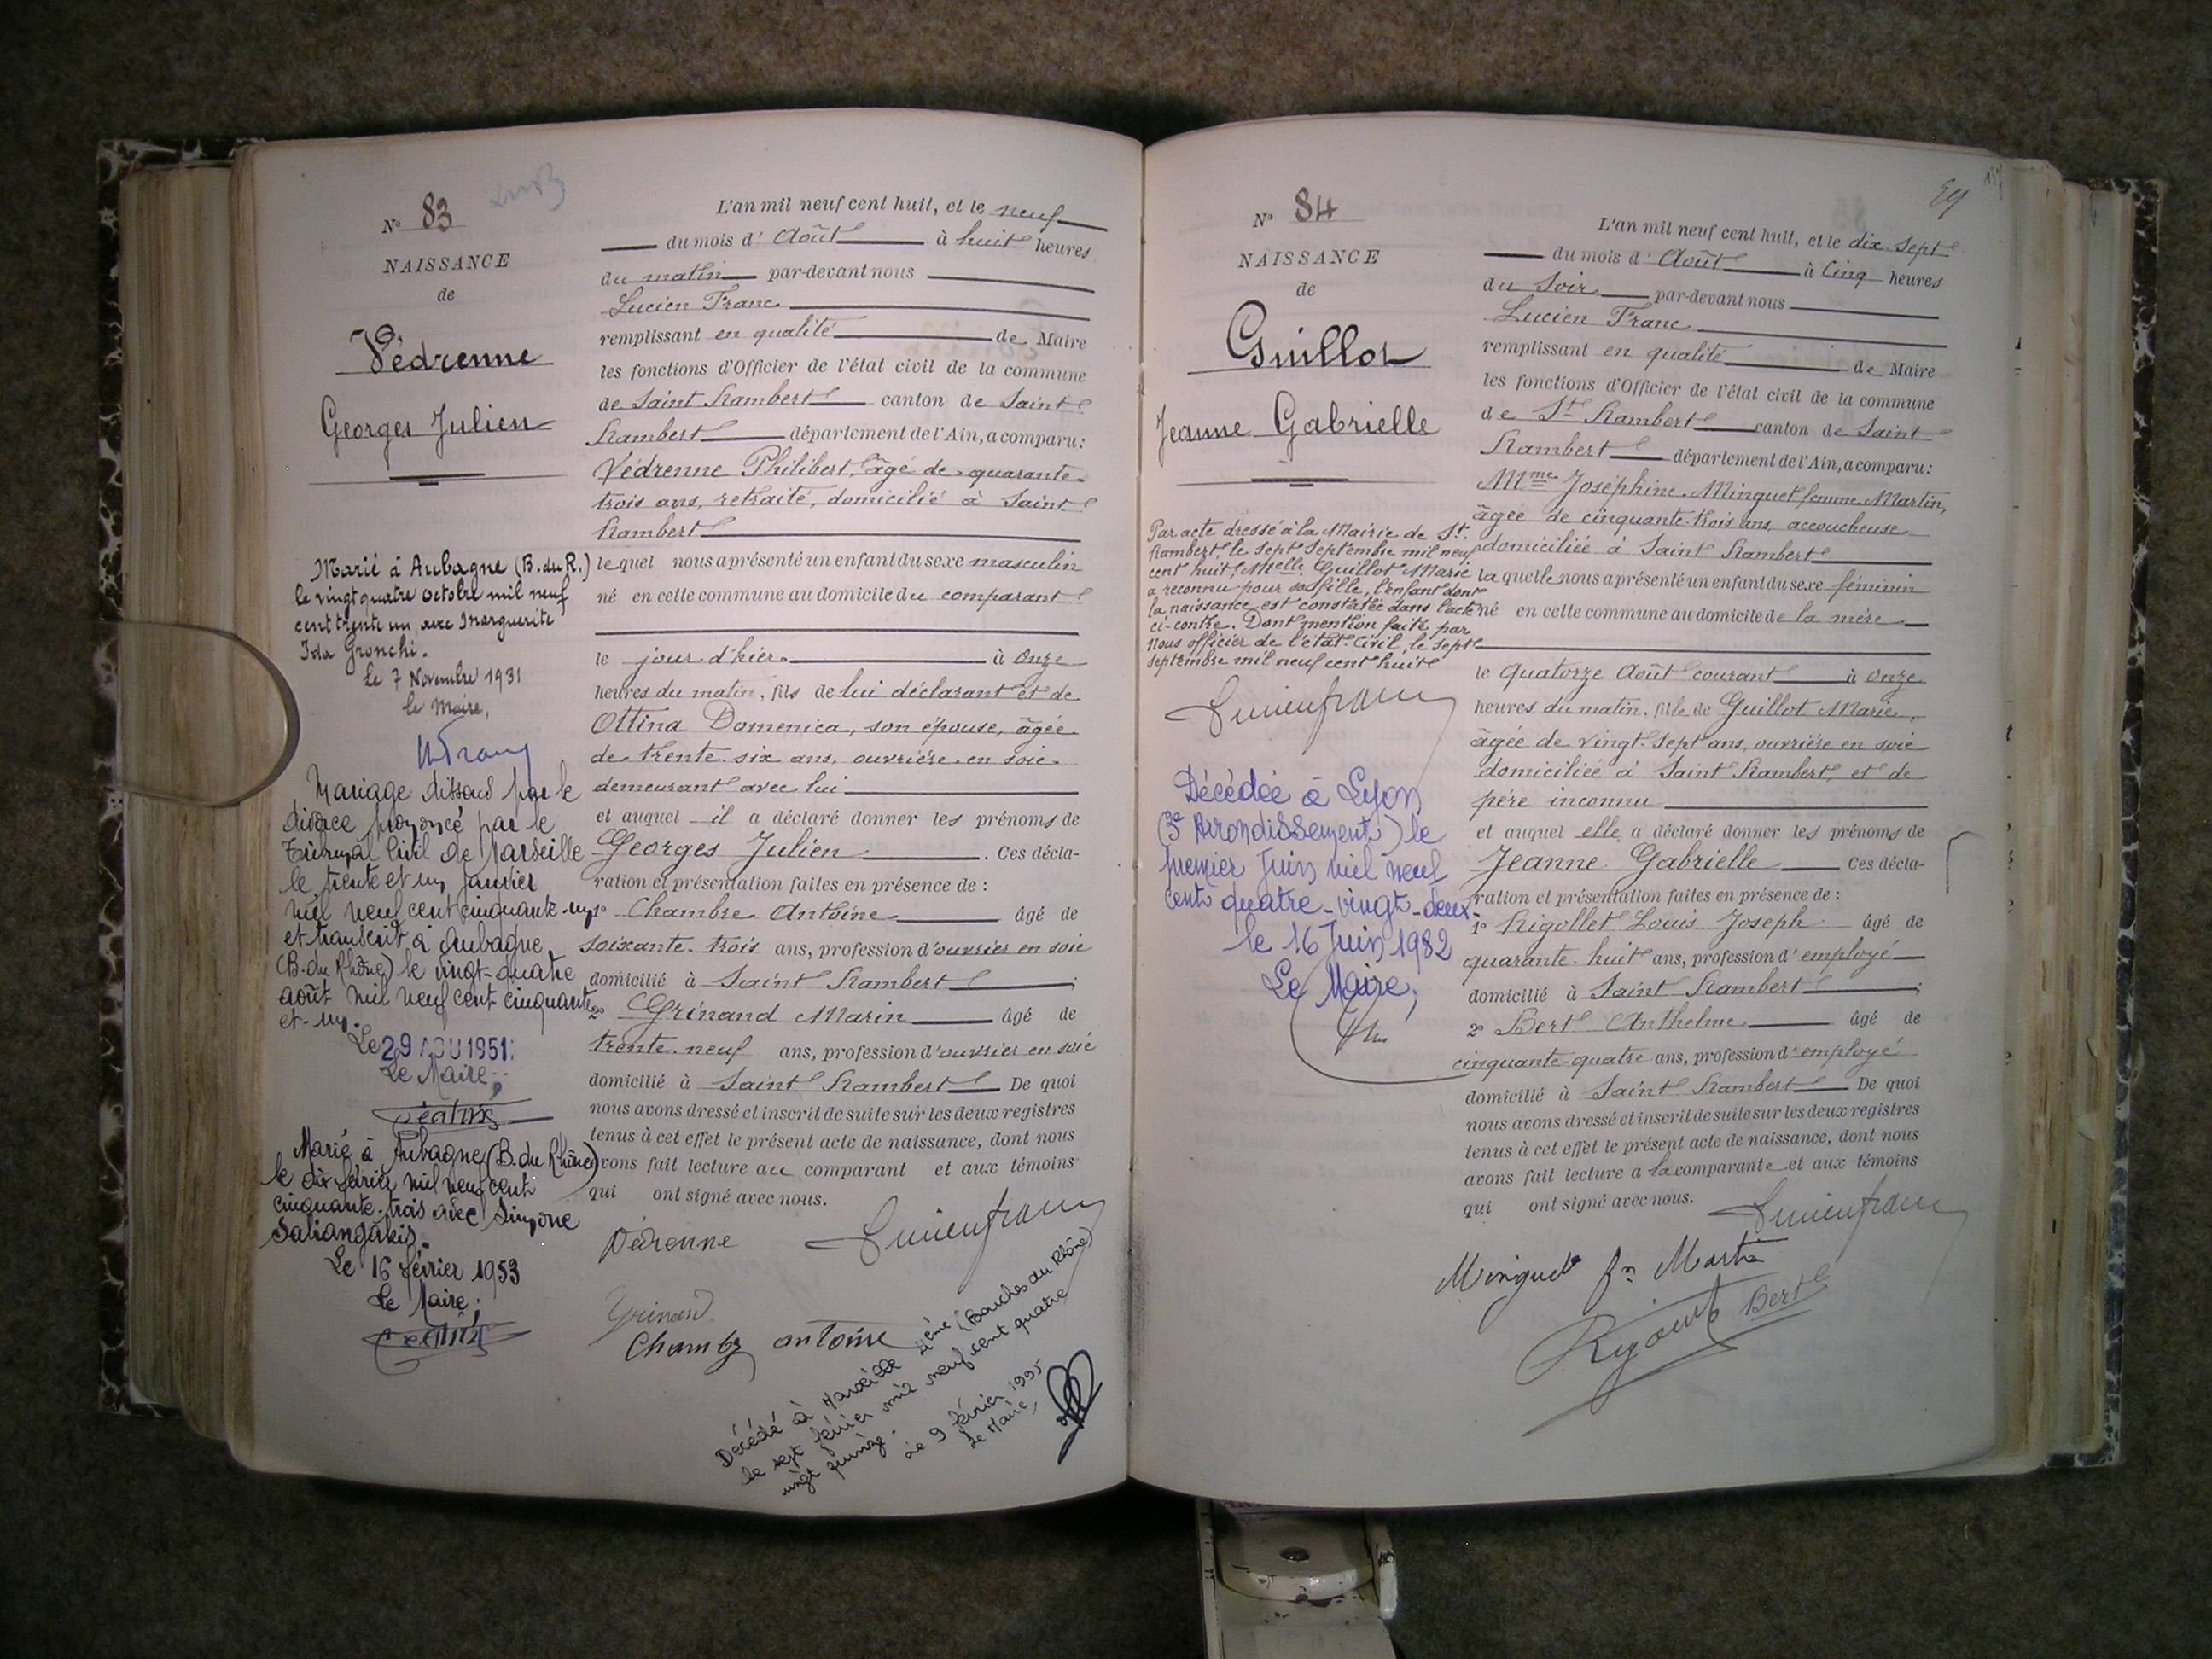 N° 83
NAISSANCE
de
Védrenne
Georges Julien
L'an mil neuf cent huit, et le neuf
du mois d' Août à huit heures
du matin par-devant nous
Lucien Franc
remplissant en qualité de Maire
les fonctions d'Officier de l'état civil de la commune
de Saint Rambert canton de Saint
Rambert département de l'Ain, a comparu:
Védrenne Philibert, âgé de quarante
trois ans, retraité, domicilié à Saint
Rambert
lequel nous a présenté un enfant du sexe masculin
né en cette commune au domicile du comparant
le jour d'hier à onze
heures du matin, fils de lui déclarant et de
Ottina Domenica, son épouse, âgée
de trente six ans, ouvrière en soie
demeurant avec lui
et auquel il a déclaré donner les prénoms de
Georges Julien . Ces décla-
ration et présentation faites en présence de :
1° Chambre Antoine âgé de
soixante-trois ans, profession d'ouvrier en soie
domicilié à Saint Rambert ;
2° Grinand Marin âgé de
trente-neuf ans, profession d'ouvrier en soie
domicilié à Saint Rambert De quoi
nous avons dressé et inscrit de suite sur les deux registres
tenus à cet effet le présent acte de naissance, dont nous
avons fait lecture au comparant et aux témoins
qui ont signé avec nous.
Védrenne Lucien franc
Grinand
Chambre antoine
Marié à Aubagne (B. du R.)
le vingt quatre octobre mil neuf
cent trente un avec Marguerite
Ida Gronchi.
Le 7 Novembre 1931
le Maire,
Mariage dissous par le
divorce prononcé par le
Tribunal Civil de Marseille
le trente et un janvier
mil neuf cent cinquante-un
et transcrit à Aubagne
(B. du Rhône) le vingt-quatre
août mil neuf cent cinquante
et-un.
Le 29 AOU 1951:
Le Maire;
Marié à Aubagne (B. du Rhône)
le dix février mil neuf cent
cinquante-trois avec Simone
Saliangakis.
Le 16 février 1953
Le Maire;
Décédé à Marseille 4ème (Bouches du Rhône)
le sept février mil neuf cent quatre
vingt quinze.
Le 9 février 1995
Le Maire,
59
N° 84
NAISSANCE
de
Guillot
Jeanne Gabrielle
L'an mil neuf cent huit, et le dix sept
du mois d' Août à cinq heures
du soir par-devant nous
Lucien Franc
remplissant en qualité de Maire
les fonctions d'Officier de l'état civil de la commune
de St Rambert canton de Saint
Rambert département de l'Ain, a comparu:
Mme Joséphine Minguet femme Martin,
âgée de cinquante-trois ans, accoucheuse
domiciliée à Saint Rambert
laquelle nous a présenté un enfant du sexe féminin
né en cette commune au domicile de la mère
le quatorze Août courant à onze
heures du matin, fille de Guillot Marie,
âgée de vingt-sept ans, ouvrière en soie
domiciliée à Saint Rambert, et de
père inconnu
et auquel elle a déclaré donner les prénoms de
Jeanne Gabrielle Ces décla-
ration et présentation faites en présence de :
1° Rigollet Louis Joseph âgé de
quarante-huit ans, profession d' employé
domicilié à Saint Rambert ;
2° Bert Anthelme âgé de
cinquante-quatre ans, profession d' employé
domicilié à Saint Rambert De quoi
nous avons dressé et inscrit de suite sur les deux registres
tenus à cet effet le présent acte de naissance, dont nous
avons fait lecture a la comparante et aux témoins
qui ont signé avec nous.
Lucien franc
Minguet fe Martin
Bert
Par acte dressé à la Mairie de St.
Rambert, le sept septembre mil neuf
cent huit, Melle Guillot Marie
a reconnu pour sa fille, l'enfant dont
la naissance est constatée dans l'acte
ci-contre. Dont mention faite par
nous officier de l'état-civil, le sept
septembre mil neuf cent huit
Lucien franc
Décédée à Lyon
(3e Arrondissement) le
premier Juin mil neuf
cent quatre-vingt-deux.
le 16 Juin 1982
Le Maire,